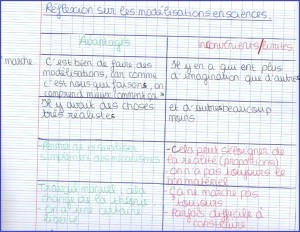 Réflexion sur les modélisations en sciences.
Avantages
Inconvénients/Limites
marche
C'est bien de faire des
modélisations, car comme
c'est nous qui faisons, on
comprend mieux comment ça
Il y avait des choses
très réalistes
Il y en a qui ont plus
d'imagination que d'autres
et d'autres beaucoup
moins
- Permet de
simplement
- Cela peut s'éloigner de
la réalité (proportions)
- on n'a pas toujours le
bon matériel
Travail manuel : cela
change de la théorie
- on a une certaine
liberté
- Ça ne marche pas
toujours
- Parfois difficile à
construire